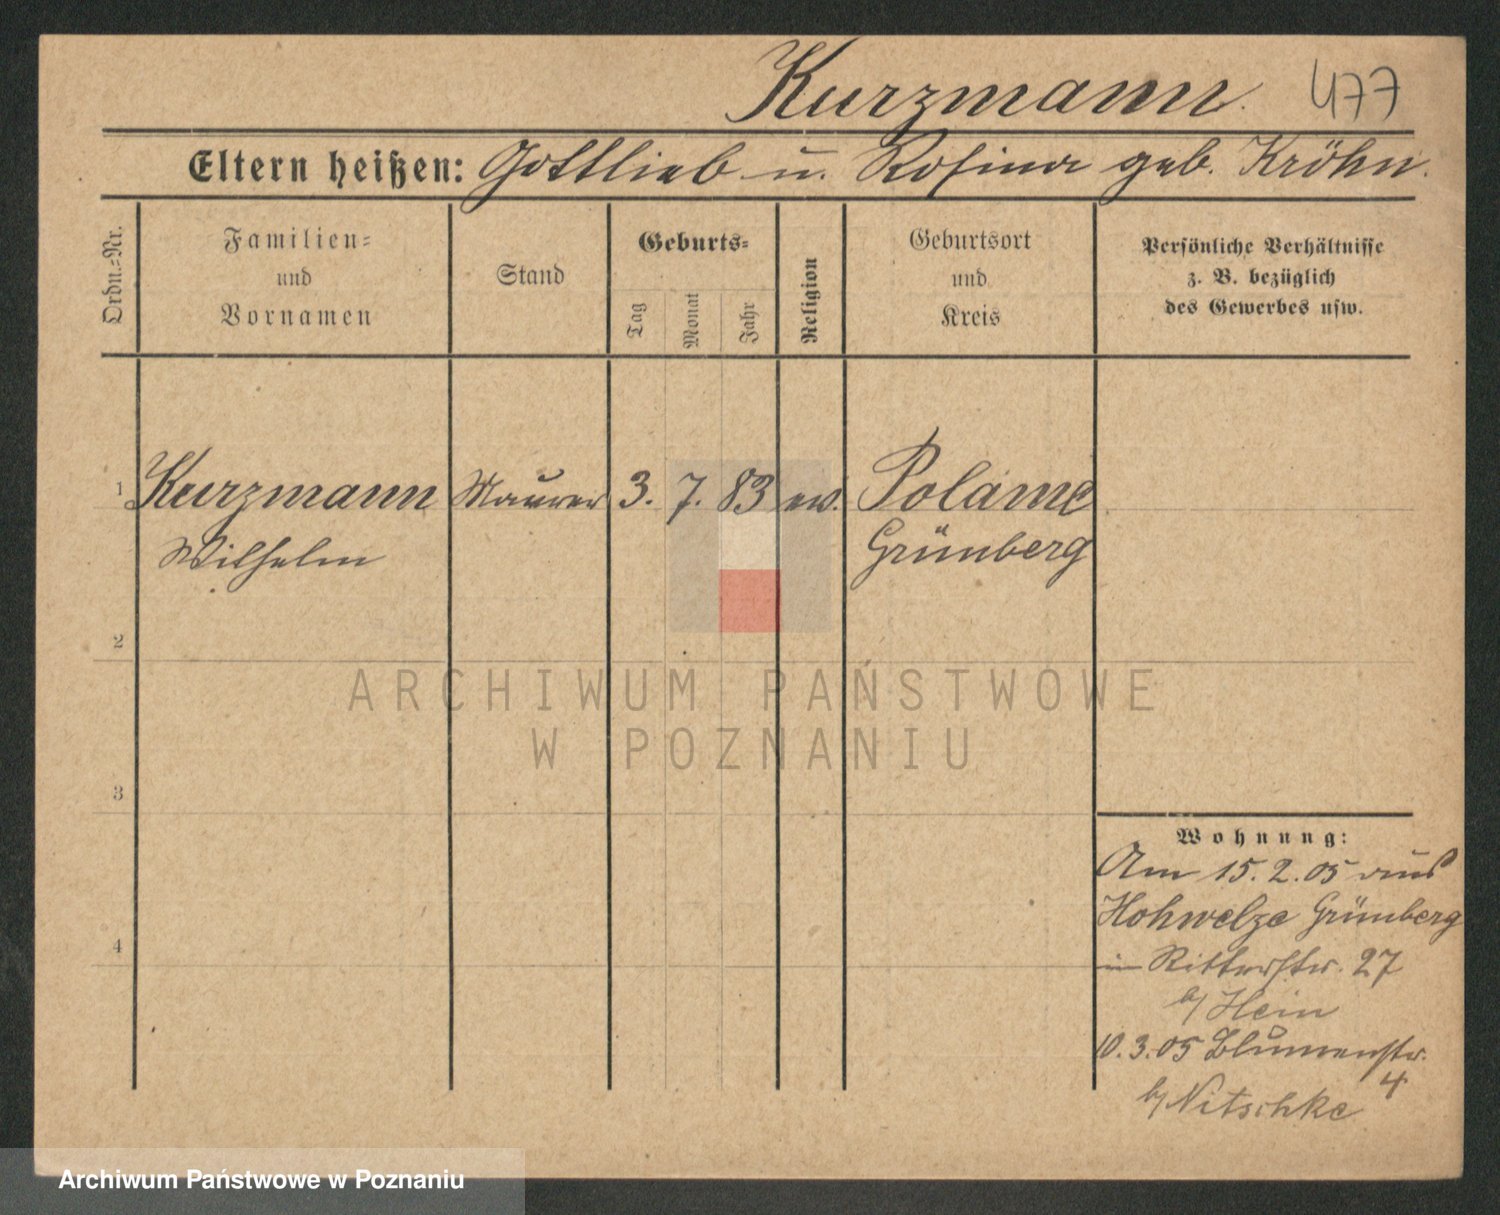 Kurzmann. 477
Eltern heißen: Gottlieb u. Rosina geb. Kröhn.
Ordn.-Nr.
Familien-
und
Vornamen
Stand
Geburts-
Tag
Monat
Jahr
Religion
Geburtsort
und
Kreis
Persönliche Verhältnisse
z. B. bezüglich
des Gewerbes usw.
1 Kurzmann Maurer 3. 7. 83 ev. Polame
Wilhelm Grünberg
2
ARCHIWUM PAŃSTWOWE
W POZNANIU
3
Wohnung:
Am 15.2.05 aus
Hohwelze Grünberg
4
in Ritterstr. 27
b/ Hein
10.3.05 Blumenstr.
4
b/ Nitschke
Archiwum Państwowe w Poznaniu